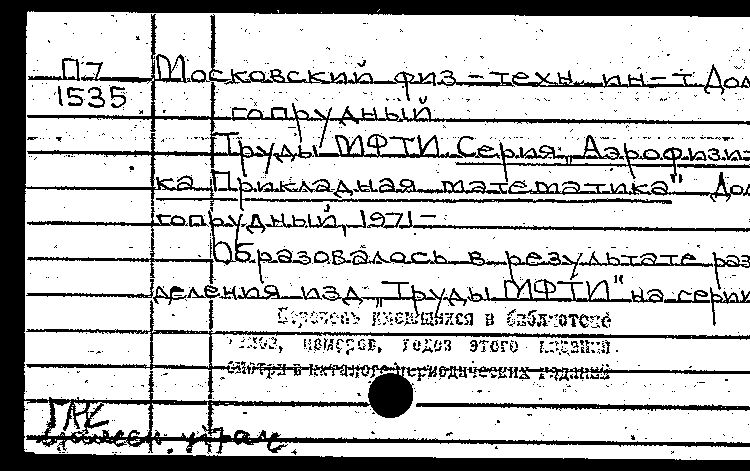 П7 Московский физ-техн. ин-т. Дол
1535 гопрудный
Труды МФТИ. Серия: „Аэрофизи-
ка. Прикладная математика" Дол
гопрудный, 1971-
Образовалось в результате раз
деления изд. „Труды МФТИ" на серии
Перечень имеющихся в библиотеке
томов, номеров, годов этого издания
смотри в каталоге периодических изданий
ГАК